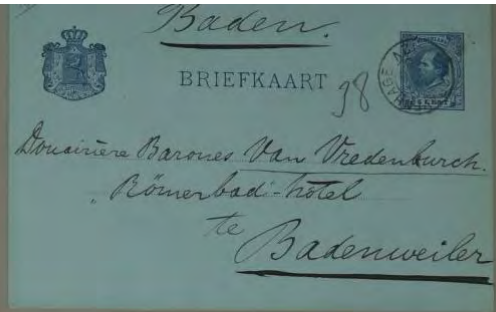 Baden.
BRIEFKAART
38
Douairière Barones Van Vredenburch.
Römerbad-hotel
te
Badenweiler